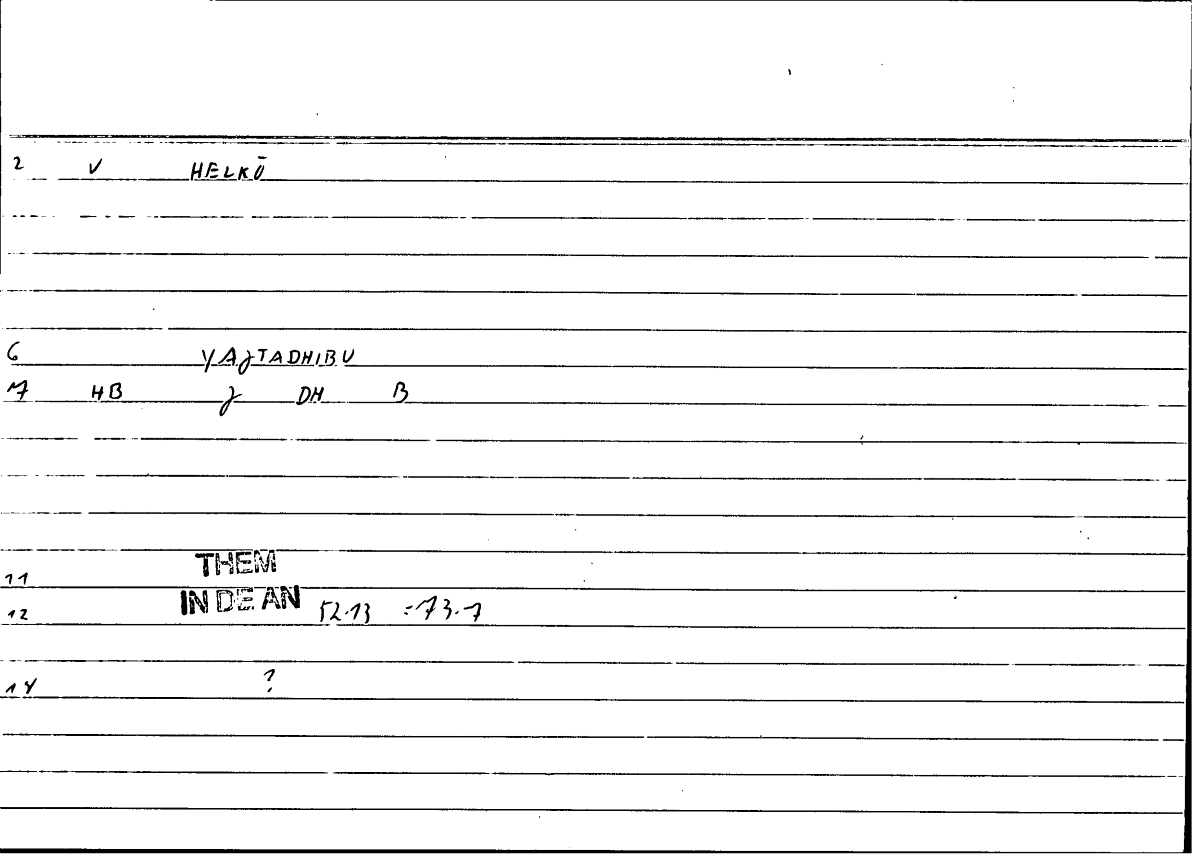 2 V HELKŪ
6 YAJTADHIBU
7 HB J DH B
11 THEM
12 IN DE AN 52.13 =73.7
14 ?